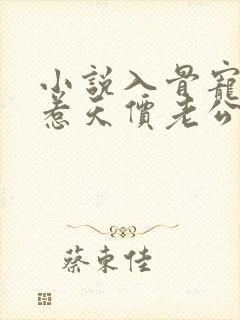 小說入骨寵
惹天價老公
蔡東佳